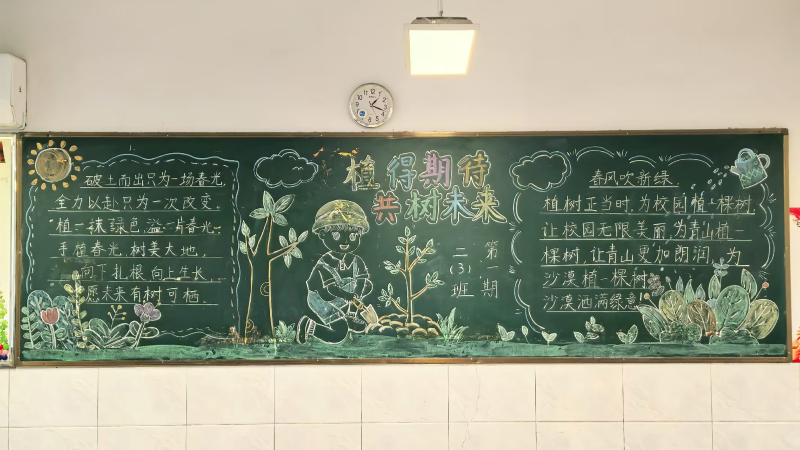 破土而出只为一场春光,
全力以赴只为一次改变.
植一抹绿色,溢一片春光.
手植春光,树美大地,
向下扎根 向上生长,
愿未来有树可栖.
植得期待
共树未来
第一期
二(3)班
春风吹新绿
植树正当时,为校园植一棵树
让校园无限美丽,为青山植一
棵树,让青山更加朗润,为
沙漠植一棵树
沙漠洒满绿意!